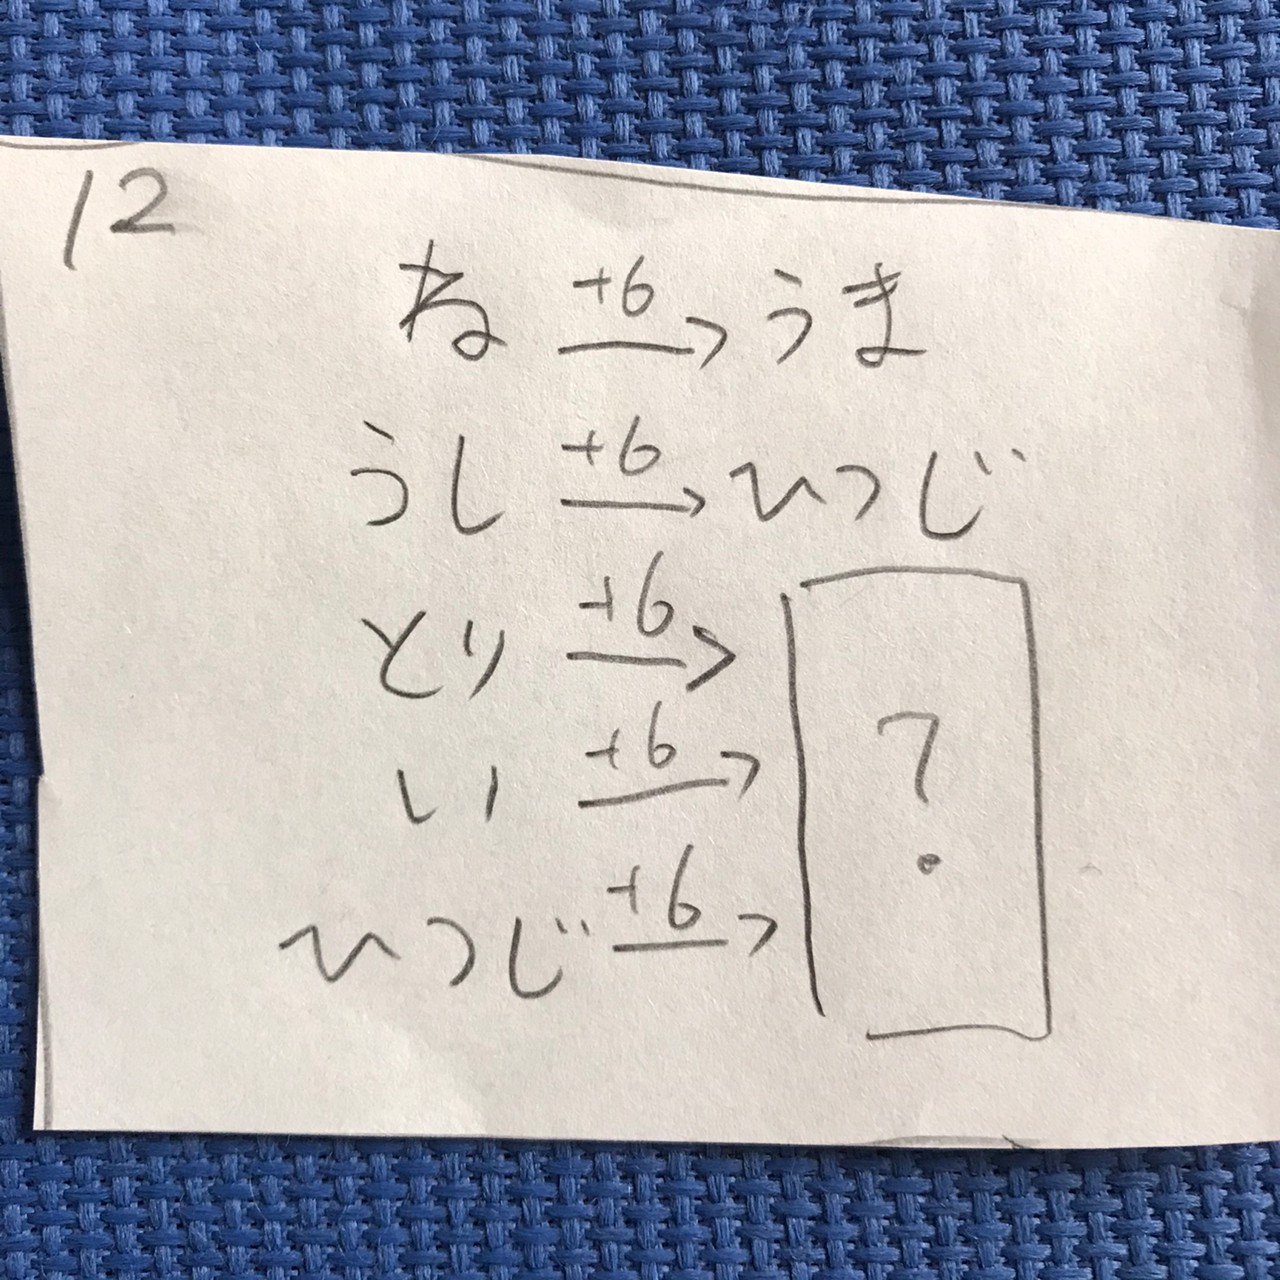 12
ね +6→ うま
うし +6→ ひつじ
とり +6→
い +6→ ?
ひつじ +6→